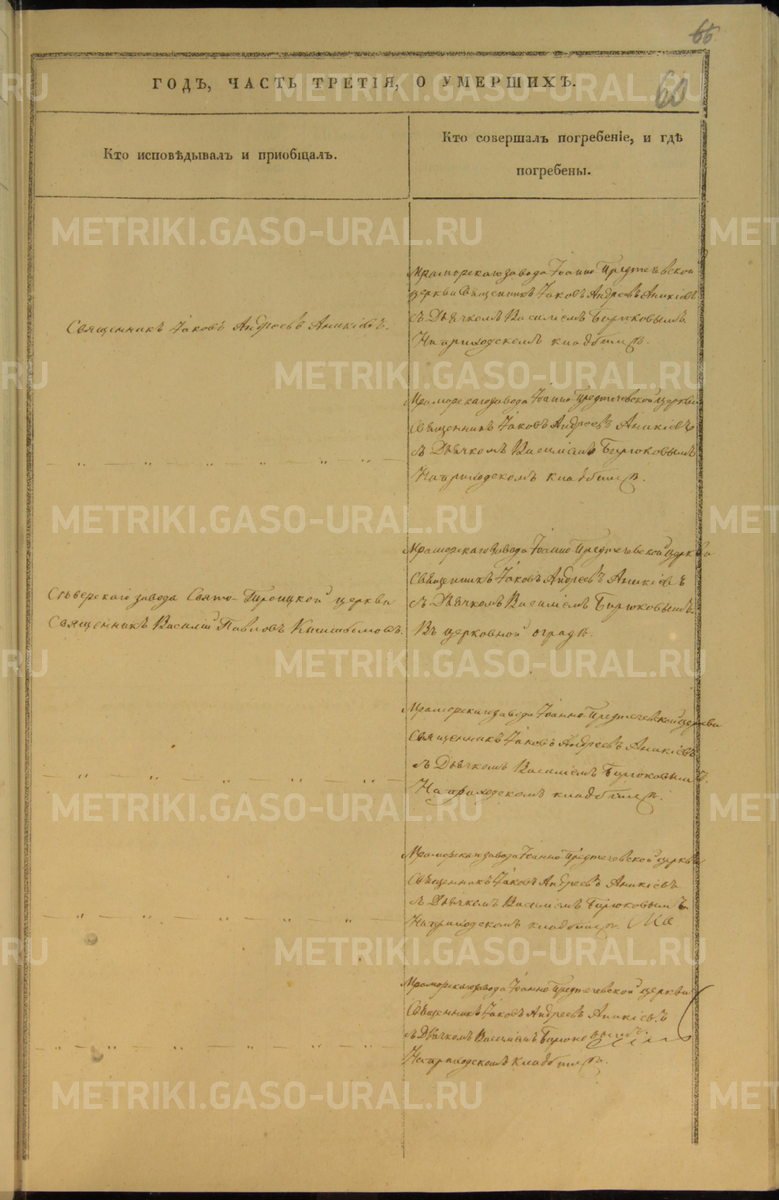 66.
60
ГОДЪ, ЧАСТЬ ТРЕТІЯ, О УМЕРШИХЪ.
Кто исповѣдывалъ и пріобщалъ.
Кто совершалъ погребеніе, и гдѣ
погребены.
Священникъ Іаковъ Андреевъ Аникіевъ.
Мраморскаго завода Іоанно Предтечевской
церкви Священникъ Іаковъ Андреевъ Аникіевъ
съ Дьячкомъ Василіемъ Бирюковымъ
На приходскомъ кладбищѣ.
Мраморскаго завода Іоанно Предтечевской церкви
Священникъ Іаковъ Андреевъ Аникіевъ
съ Дьячкомъ Василіемъ Бирюковымъ
На приходскомъ кладбищѣ.
— „ — „ — „ — „ — „ —
Сѣверскаго завода Свято-Троицкой церкви
Священникъ Василій Павловъ
Мраморскаго завода Іоанно Предтечевской церкви
Священникъ Іаковъ Андреевъ Аникіевъ
съ Дьячкомъ Василіемъ Бирюковымъ.
Въ церковной оградѣ.
— „ — „ — „ — „ — „ —
Мраморскаго завода Іоанно Предтечевской церкви
Священникъ Іаковъ Андреевъ Аникіевъ
съ Дьячкомъ Василіемъ Бирюковымъ.
На приходскомъ кладбищѣ.
— „ — „ — „ — „ — „ —
Мраморскаго завода Іоанно Предтечевской церкви
Священникъ Іаковъ Андреевъ Аникіевъ
съ Дьячкомъ Василіемъ Бирюковымъ.
На приходскомъ кладбищѣ.
— „ — „ — „ — „ — „ —
Мраморскаго завода Іоанно Предтечевской церкви
Священникъ Іаковъ Андреевъ Аникіевъ
съ Дьячкомъ Василіемъ Бирюковымъ.
На приходскомъ кладбищѣ.
METRIKI.GASO-URAL.RU